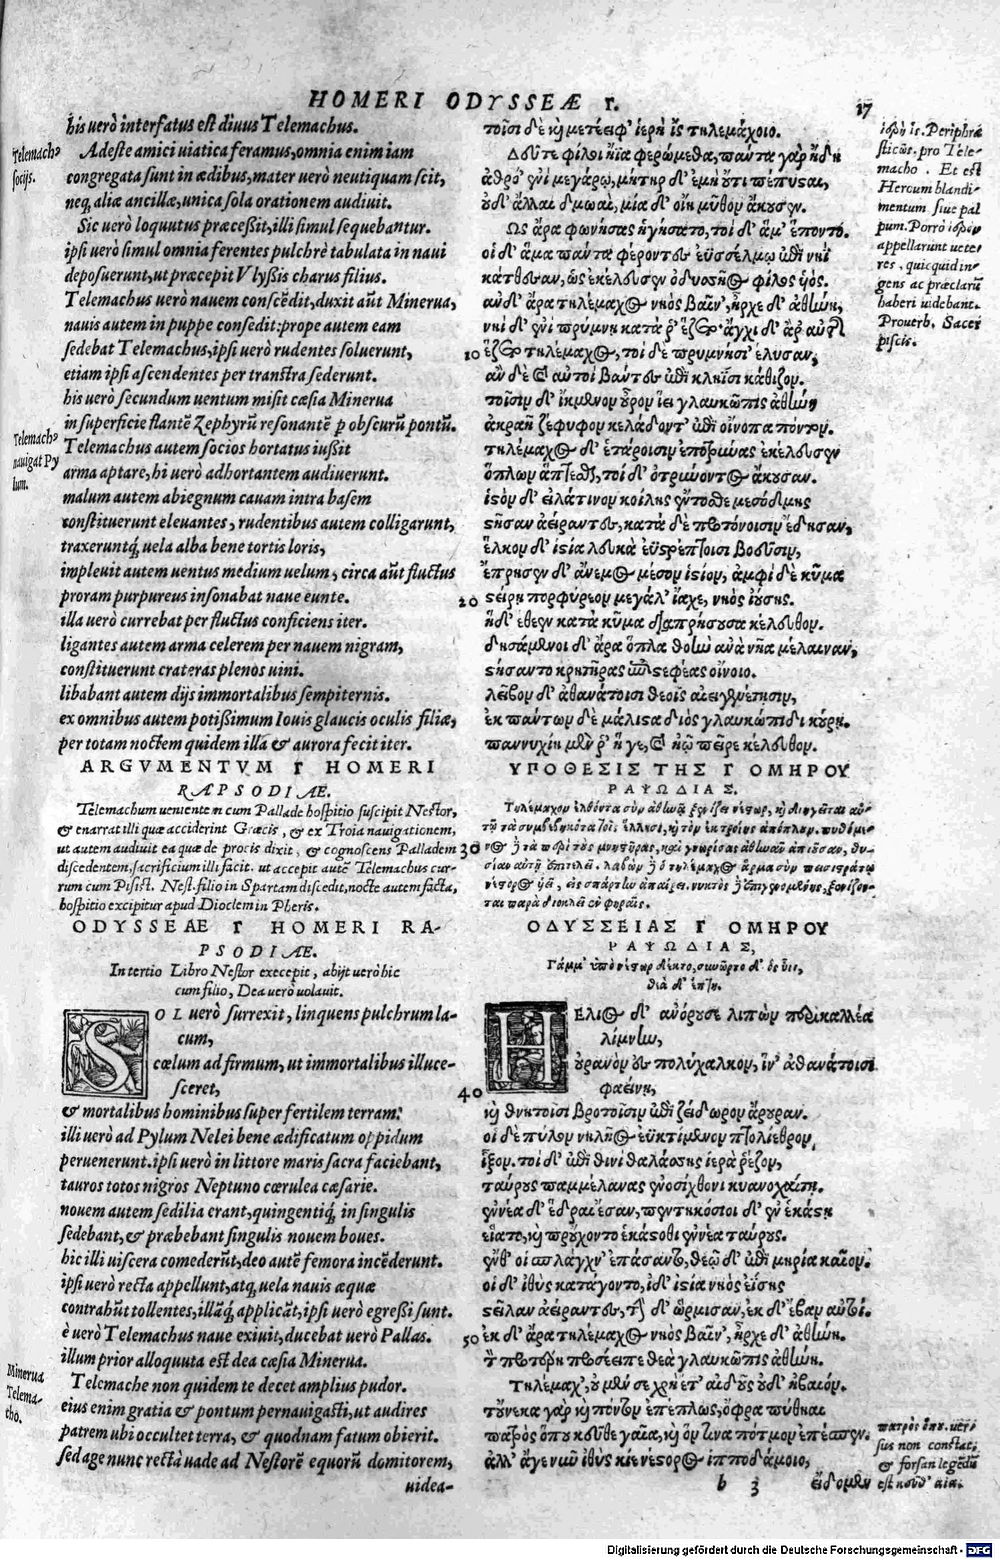 HOMERI ODYSSEÆ Γ. 17
his uerò interfatus est diuus Telemachus.
Telemachꝰ
socijs.
Adeste amici uiatica feramus, omnia enim iam
congregata sunt in ædibus, mater uerò neutiquam scit,
neq; aliæ ancillæ, unica sola orationem audiuit.
Sic uerò loquutus præcessit, illi simul sequebantur.
ipsi uerò simul omnia ferentes pulchrè tabulata in naui
deposuerunt, ut præcepit Vlyßis charus filius.
Telemachus uerò nauem conscẽdit, duxit aũt Minerua,
nauis autem in puppe consedit: prope autem eam
sedebat Telemachus, ipsi uerò rudentes soluerunt,
etiam ipsi ascendentes per transtra sederunt.
his uerò secundum uentum misit cæsia Minerua
in superficie flantẽ Zephyrũ resonantẽ p obscurũ pontũ.
Telemachꝰ
nauigat Py
lum.
Telemachus autem socios hortatus iußit
arma aptare, hi uerò adhortantem audiuerunt.
malum autem abiegnum cauam intra basem
constituerunt eleuantes, rudentibus autem colligarunt,
traxeruntq́; uela alba bene tortis loris,
impleuit autem uentus medium uelum, circa aũt fluctus
proram purpureus insonabat naue eunte.
illa uerò currebat per fluctus conficiens iter.
ligantes autem arma celerem per nauem nigram,
constituerunt crateras plenos uini.
libabant autem dijs immortalibus sempiternis.
ex omnibus autem potißimum Iouis glaucis oculis filiæ,
per totam noctem quidem illa & aurora fecit iter.
ARGVMENTVM Γ HOMERI
RAPSODIÆ.
Telemachum uenientem cum Pallade hospitio suscipit Nestor,
& enarrat illi quæ acciderint Græcis, & ex Troia nauigationem,
ut autem audiuit ea quæ de procis dixit, & cognoscens Palladem
discedentem, sacrificium illi facit. ut accepit autẽ Telemachus cur-
rum cum Pisist. Nest. filio in Spartam discedit, nocte autem facta,
hospitio excipitur apud Dioclem in Pheris.
ODYSSEAE Γ HOMERI RA-
PSODIÆ.
In tertio Libro Nestor execepit, abijt uerò hic
cum filio, Dea uerò uolauit.
SOL uerò surrexit, linquens pulchrum la-
cum,
cœlum ad firmum, ut immortalibus illuce-
sceret,
& mortalibus hominibus super fertilem terram:
illi uerò ad Pylum Nelei bene ædificatum oppidum
peruenerunt. ipsi uerò in littore maris sacra faciebant,
tauros totos nigros Neptuno cœrulea cæsarie.
nouem autem sedilia erant, quingentiq́; in singulis
sedebant, & præbebant singulis nouem boues.
hic illi uiscera comederũt, deo autẽ femora incẽderunt.
ipsi uerò recta appellunt, atq; uela nauis æquæ
contrahũt tollentes, illãq́; applicãt, ipsi uerò egreßi sunt.
è uerò Telemachus naue exiuit, ducebat uerò Pallas.
illum prior alloquuta est dea cæsia Minerua.
Minerua
Telema-
cho.
Telemache non quidem te decet amplius pudor.
eius enim gratia & pontum pernauigasti, ut audires
patrem ubi occultet terra, & quodnam fatum obierit.
sed age nunc rectà uade ad Nestorẽ equorũ domitorem,
uidea-
τοῖσι δὲ καὶ μετέειφ' ἱερὴ ἲς τηλεμάχοιο.
Δεῦτε φίλοι ἤϊα φερώμεθα, πάντα γὰρ ἤδη
ἀθρό' ἐνὶ μεγάρῳ, μήτηρ δ' ἐμὴ οὔτι πέπυσαι,
οὐδ' ἄλλαι δμωαὶ, μία δ' οἴη μῦθον ἄκουσεν.
Ως ἄρα φωνήσας ἡγήσατο, τοὶ δ' ἅμ' ἕποντο.
οἱ δ' ἅμα πάντα φέροντες ἐϋσσέλμῳ ἐπὶ νηῒ
κάτθεσαν, ὡς ἐκέλευσεν ὀδυσσῆος φίλος υἱός.
ἂν δ' ἄρα τηλέμαχος νηὸς βαῖν', ἦρχε δ' ἀθήνη,
νηῒ δ' ἐνὶ πρύμνη κατὰ ῥ' ἕζετο· ἄγχι δ' ἄρ' αὐτῆς
10 ἕζετο τηλέμαχος, τοὶ δὲ πρυμνήσι' ἔλυσαν,
ἂν δὲ καὶ αὐτοὶ βάντες ἐπὶ κληῖσι κάθιζον.
τοῖσιν δ' ἴκμενον οὖρον ἵει γλαυκῶπις ἀθήνη
ἀκραῆ ζέφυρον κελάδοντ' ἐπὶ οἴνοπα πόντον.
τηλέμαχος δ' ἑτάροισιν ἐποτρύνας ἐκέλευσεν
ὅπλων ἅπτεσθαι, τοὶ δ' ὀτρύνοντος ἄκουσαν.
ἱστὸν δ' εἰλάτινον κοίλης ἔντοσθε μεσόδμης
στῆσαν ἀείραντες, κατὰ δὲ προτόνοισιν ἔδησαν,
ἕλκον δ' ἱστία λευκὰ ἐϋστρέπτοισι βοεῦσιν,
ἔπρησεν δ' ἄνεμος μέσον ἱστίον, ἀμφὶ δὲ κῦμα
20 στείρῃ πορφύρεον μεγάλ' ἴαχε, νηὸς ἰούσης.
ἡ δ' ἔθεεν κατὰ κῦμα διαπρήσουσα κέλευθον.
δησάμενοι δ' ἄρα ὅπλα θοὴν ἀνὰ νῆα μέλαιναν,
στήσαντο κρητῆρας ἐπιστεφέας οἴνοιο.
λεῖβον δ' ἀθανάτοισι θεοῖς αἰειγενέτησιν,
ἐκ πάντων δὲ μάλιστα διὸς γλαυκώπιδι κούρῃ.
παννυχίη μέν ῥ' ἥ γε, καὶ ἠῶ πεῖρε κέλευθον.
ΥΠΟΘΕΣΙΣ ΤΗΣ Γ ΟΜΗΡΟΥ
ΡΑΨΩΔΙΑΣ.
30
ΟΔΥΣΣΕΙΑΣ Γ ΟΜΗΡΟΥ
ΡΑΨΩΔΙΑΣ,
ΗΕΛΙΟΣ δ' ἀνόρουσε λιπὼν περικαλλέα
λίμνην,
οὐρανὸν ἐς πολύχαλκον, ἵν' ἀθανάτοισι
40 φαείνῃ,
καὶ θνητοῖσι βροτοῖσιν ἐπὶ ζείδωρον ἄρουραν.
οἱ δὲ πύλον νηλῆος ἐϋκτίμενον πτολίεθρον,
ἷξον. τοὶ δ' ἐπὶ θινὶ θαλάσσης ἱερὰ ῥέζον,
ταύρους παμμέλανας ἐνοσίχθονι κυανοχαίτῃ.
ἐννέα δ' ἕδραι ἔσαν, πεντηκόσιοι δ' ἐν ἑκάστῃ
εἵατο, καὶ προὔχοντο ἑκάστοθι ἐννέα ταύρους.
ἔνθ' οἱ σπλάγχν' ἐπάσαντο, θεῷ δ' ἐπὶ μηρία καῖον.
οἱ δ' ἰθὺς κατάγοντο, ἰδ' ἱστία νηὸς ἐΐσης
στεῖλαν ἀείραντες, τὴν δ' ὥρμισαν, ἐκ δ' ἔβαν αὐτοί.
50 ἐκ δ' ἄρα τηλέμαχος νηὸς βαῖν', ἦρχε δ' ἀθήνη.
τὸν προτέρη προσέειπε θεὰ γλαυκῶπις ἀθήνη.
Τηλέμαχ', οὐ μέν σε χρὴ ἔτ' αἰδοῦς οὐδ' ἠβαιόν.
τοὔνεκα γὰρ καὶ πόντον ἐπέπλως, ὄφρα πύθηαι
πατρὸς ὅπου κεύθε γαῖα, καὶ ὅν τινα πότμον ἐπέσπεν.
ἀλλ' ἄγε νῦν ἰθὺς κίε νέστορος ἱπποδάμοιο,
b 3 εἴδομεν
ἱερὴ ἲς. Periphra
sticῶς, pro Tele-
macho. Et est
Heroum blandi-
mentum siue pal
pum. Porrò ἱερὸν
appellarunt uete-
res, quicquid in-
gens ac præclarũ
haberi uidebant.
Prouerb. Sacer
piscis.
πατρὸς ὅπου. uer-
sus non constat,
& forsan legẽdũ
est κεύθ' αἶα.
Digitalisierung gefördert durch die Deutsche Forschungsgemeinschaft - DFG